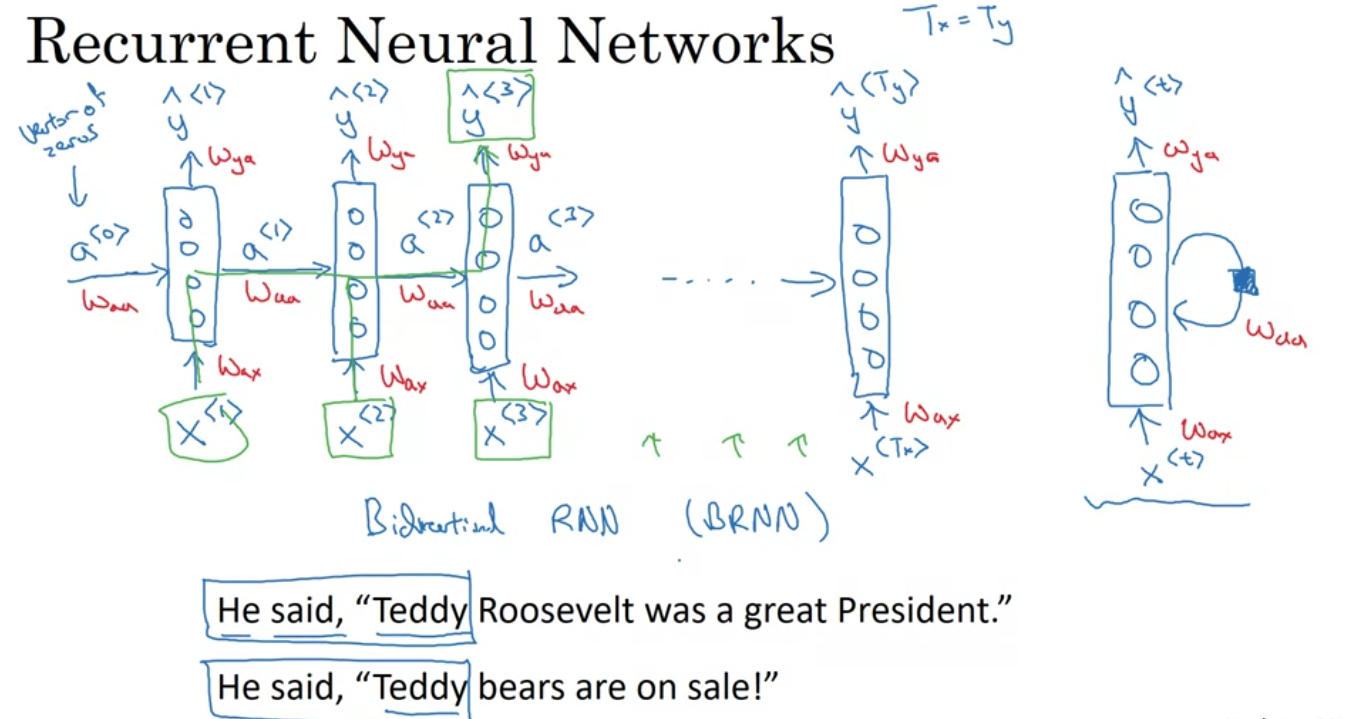 Recurrent Neural Networks
Tx = Ty
vector of zeros
ŷ<1> ŷ<2> ŷ<3> ŷ<Ty> ŷ<t>
Wya Wya Wya Wya Wya
a<0> a<1> a<2> a<3>
Waa Waa Waa Waa Waa
Wax Wax Wax Wax Wax
x<1> x<2> x<3> x<Tx> x<t>
Bidirectional RNN (BRNN)
He said, “Teddy Roosevelt was a great President.”
He said, “Teddy bears are on sale!”